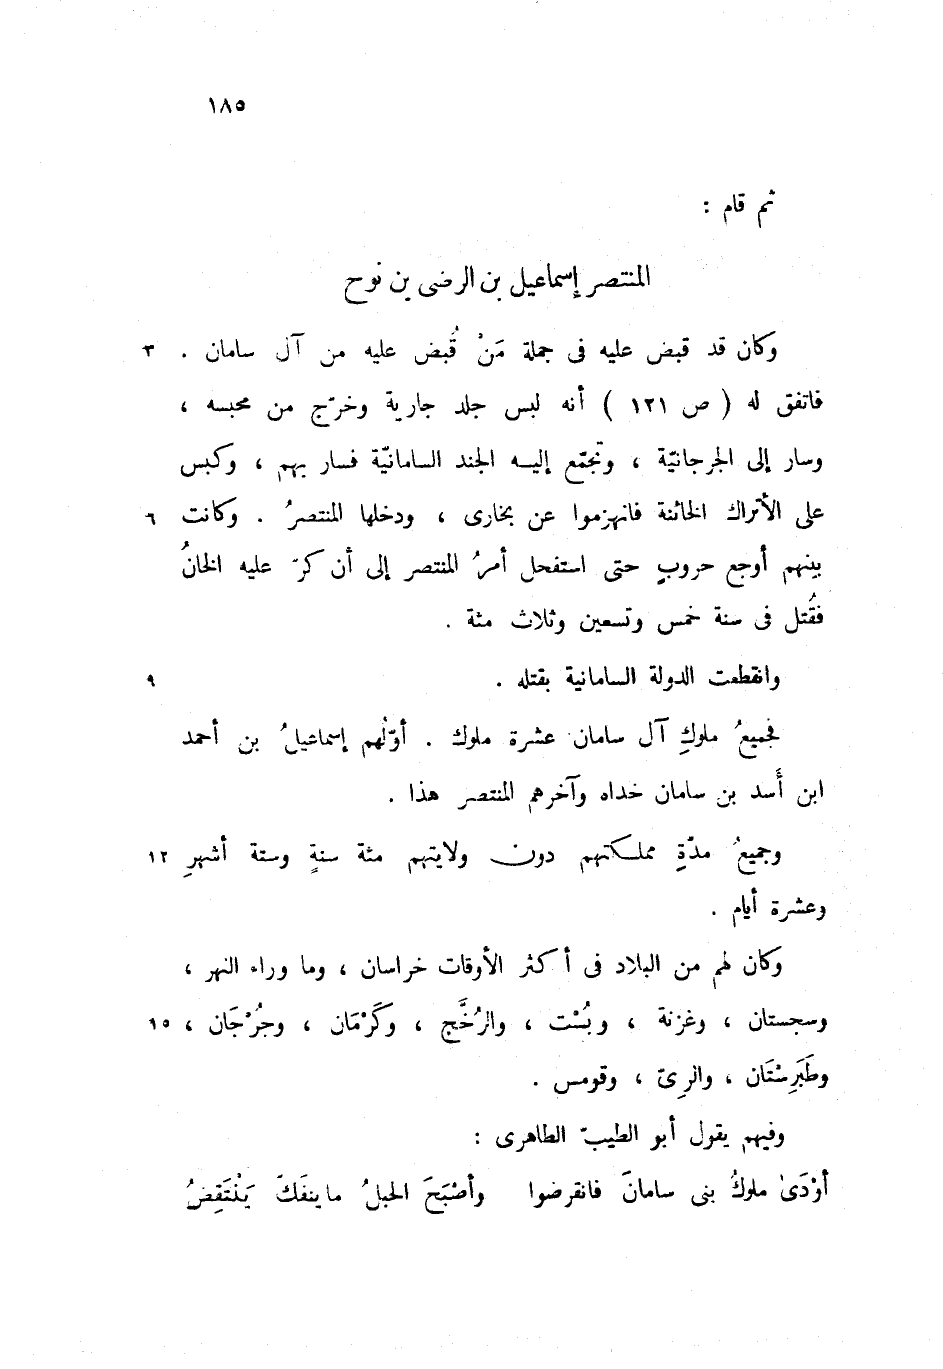 ١٨٥
ثم قام :
المنتصر إسماعيل بن الرضى بن نوح
وكان قد قبض عليه فى جملة مَنْ قُبض عليه من آل سامان . ٣
فاتفق له ( ص ١٢١ ) أنه لبس جلد جارية وخرّج من محبسه ،
وسار إلى الجرجانيّة ، وتجمّع إليه الجند السامانيّة فسار بهم ، وكبس
على الأتراك الخائنة فانهزموا عن بخارى ، ودخلها المنتصرُ . وكانت ٦
بينهم أوجع حروبٍ حتى استفحل أمرُ المنتصر إلى أن كرّ عليه الخانُ
فقُتل فى سنة خمس وتسعين وثلاث مئة .
وانقطعت الدولة السامانية بقتله . ٩
فجميعُ ملوكِ آل سامان عشرة ملوك . أوّلُهم إسماعيلُ بن أحمد
ابن أَسد بن سامان خداه وآخرهم المنتصر هذا .
وجميعُ مدّةِ مملكتهم دون ولايتهم مئة سنةٍ وستة أشهرٍ ١٢
وعشرة أيام .
وكان لهم من البلاد فى أكثر الأوقات خراسان ، وما وراء النهر ،
وسجستان ، وغزنة ، وبُسْت ، والرُخَّج ، وكَرْمَان ، وجُرْجَان ، ١٥
وطَبَرِسْتَان ، والرىّ ، وقومس .
وفيهم يقول أبو الطيبّ الطاهرى :
أوْدَىٰ ملوكُ بنى سامانَ فانقرضوا وأصْبَحَ الحبلُ ماينفَكّ يَنْتَقِضُ